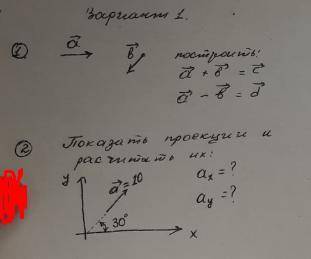 Вариант 1.
① a⃗ b⃗ построить:
a⃗ + b⃗ = c⃗
a⃗ - b⃗ = d⃗
② Показать проекции и
расчитать их:
y a⃗=10 aₓ = ?
a_y = ?
30°
x